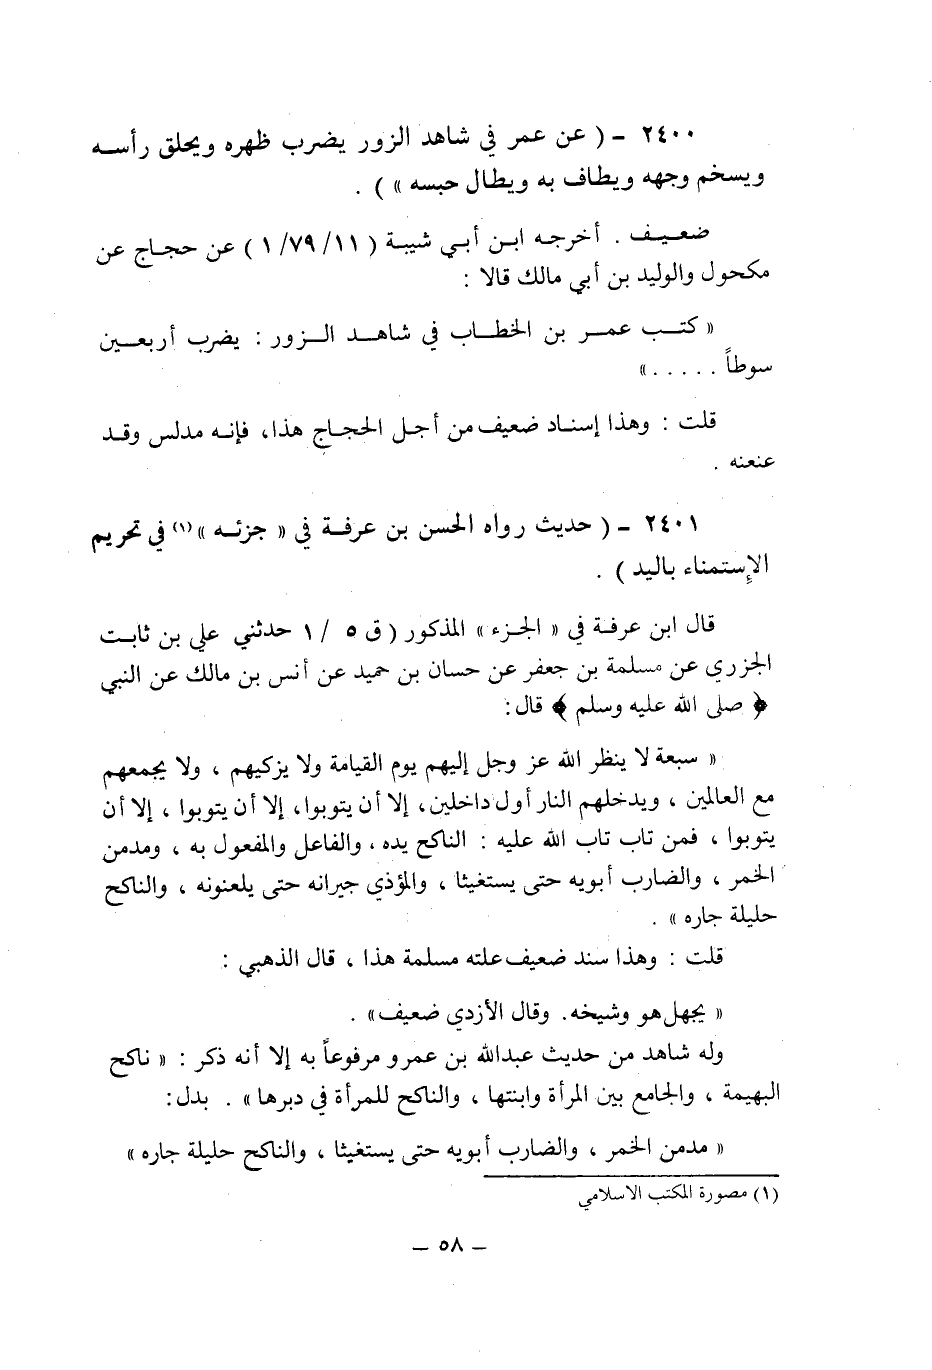 ٢٤٠٠ - ( عن عمر في شاهد الزور يضرب ظهره ويحلق رأسه
ويسخم وجهه ويطاف به ويطال حبسه » ) .
ضعيف . أخرجه ابن أبي شيبة ( ١١/ ٧٩/ ١ ) عن حجاج عن
مكحول والوليد بن أبي مالك قالا :
« كتب عمر بن الخطاب في شاهد الزور : يضرب أربعين
سوطاً . . . . . »
قلت : وهذا إسناد ضعيف من أجل الحجاج هذا، فإنه مدلس وقد
عنعنه .
٢٤٠١ - ( حديث رواه الحسن بن عرفة في « جزئه »(١) في تحريم
الإستمناء باليد ) .
قال ابن عرفة في « الجزء » المذكور ( ق ٥ / ١ حدثني علي بن ثابت
الجزري عن مسلمة بن جعفر عن حسان بن حميد عن أنس بن مالك عن النبي
﴿ صلى الله عليه وسلم ﴾ قال :
« سبعة لا ينظر الله عز وجل إليهم يوم القيامة ولا يزكيهم ، ولا يجمعهم
مع العالمين ، ويدخلهم النار أول داخلين، إلا أن يتوبوا، إلا أن يتوبوا ، إلا أن
يتوبوا ، فمن تاب تاب الله عليه : الناكح يده ، والفاعل والمفعول به ، ومدمن
الخمر ، والضارب أبويه حتى يستغيثا ، والمؤذي جيرانه حتى يلعنونه ، والناكح
حليلة جاره » .
قلت : وهذا سند ضعيف علته مسلمة هذا ، قال الذهبي :
« يجهل هو وشيخه. وقال الأزدي ضعيف» .
وله شاهد من حديث عبدالله بن عمرو مرفوعاً به إلا أنه ذكر : « ناكح
البهيمة ، والجامع بين المرأة وابنتها ، والناكح للمرأة في دبرها » . بدل :
« مدمن الخمر ، والضارب أبويه حتى يستغيثا ، والناكح حليلة جاره »
(١) مصورة المكتب الاسلامي
- ٥٨ -